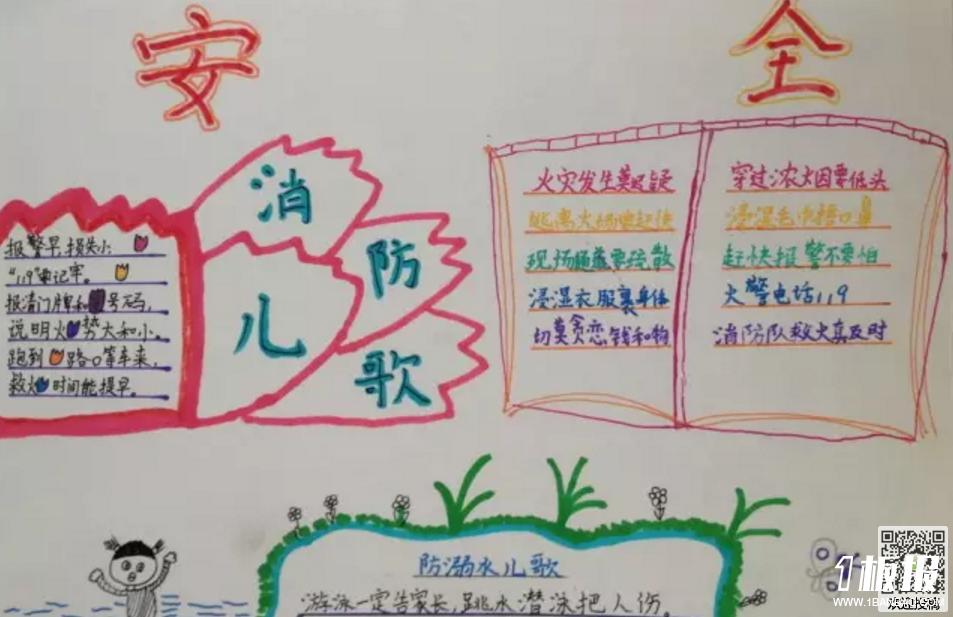 安全
消防儿歌
报警早,损失小
"119"要记牢。
报清门牌和号码,
说明火势大和小。
跑到路口等车来,
救火时间能提早。
火灾发生莫迟疑
逃离火场要赶快
现场随意要疏散
浸湿衣服裹身体
切莫贪恋钱和物
穿过浓火因要低头
浸湿毛巾捂口鼻
赶快报警不要怕
火警电话119
消防队救火真及时
防溺水儿歌
游泳一定告家长,跳水潜泳把人伤。
1板报
WWW.1BANBAO.COM
欢迎投稿